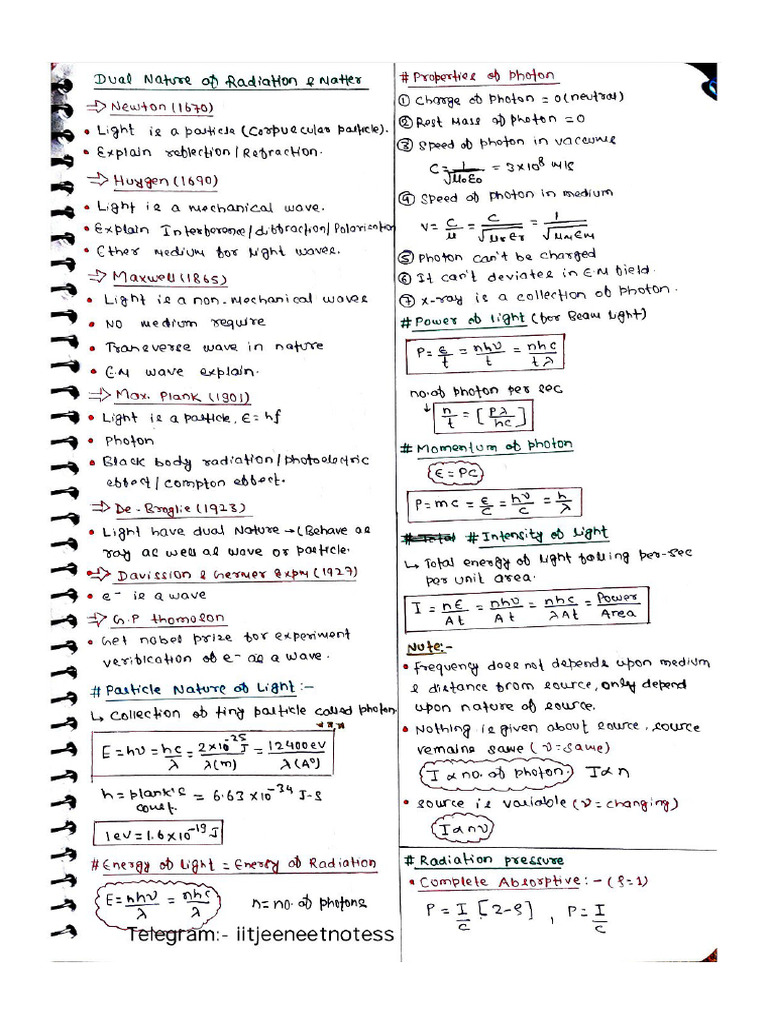 Dual Nature of Radiation & Matter
⇒ Newton (1670)
• Light is a particle (Corpuscular particle).
• Explain reflection / Refraction.
⇒ Huygen (1690)
• Light is a mechanical wave.
• Explain Interference/diffraction/Polarization
• Ether medium for light waves.
⇒ Maxwell (1865)
• Light is a non-mechanical waves
• NO medium require
• Transverse wave in nature
• E.M wave explain.
⇒ Max. Plank (1901)
• Light is a particle, E = hf
• Photon
• Black body radiation / photoelectric
effect / compton effect.
⇒ De-Broglie (1923)
• Light have dual Nature → (Behave as
ray as well as wave or particle.
⇒ Davission & Germer Expm (1927)
• e⁻ is a wave
⇒ G.P thomoson
• Get nobel prize for experiment
verification of e⁻ as a wave.
# Particle Nature of Light :-
↳ Collection of tiny particle called photon
E = hν = hc/λ = 2×10⁻²⁵ J/λ(m) = 12400 eV/λ(A°)
h = plank's const. = 6.63 × 10⁻³⁴ J-S
1 ev = 1.6 × 10⁻¹⁹ J
# Energy of Light = Energy of Radiation
E = nhν/λ = nhc/λ n = no. of photons
# Properties of Photon
① Charge of photon = 0 (neutral)
② Rest Mass of photon = 0
③ Speed of photon in vaccume
C = 1/√μ₀ε₀ = 3×10⁸ m/s
④ Speed of photon in medium
v = c/μ = c/√μᵣεᵣ = 1/√μₘεₘ
⑤ Photon can't be charged
⑥ It can't deviates in E.M field.
⑦ X-ray is a collection of photon.
# Power of light (for Beam light)
P = E/t = nhν/t = nhc/tλ
no. of photon per sec
↓ n/t = [Pλ/hc]
# Momentum of photon
E = PC
P = mc = E/C = hν/C = h/λ
# Total # Intensity of light
↳ Total energy of light falling per-sec
per unit area.
I = nE/At = nhν/At = nhc/λAt = Power/Area
Note:-
• Frequency does not depends upon medium
& distance from source, only depend
upon nature of source.
• Nothing is given about source, source
remains same (ν = same)
I ∝ no. of photon. I ∝ n
• Source is variable (ν = changing)
I ∝ nν
# Radiation pressure
• Complete Absorptive :- (ρ=1)
P = I/c [2-ρ] , P = I/c
Telegram:- iitjeeneetnotess